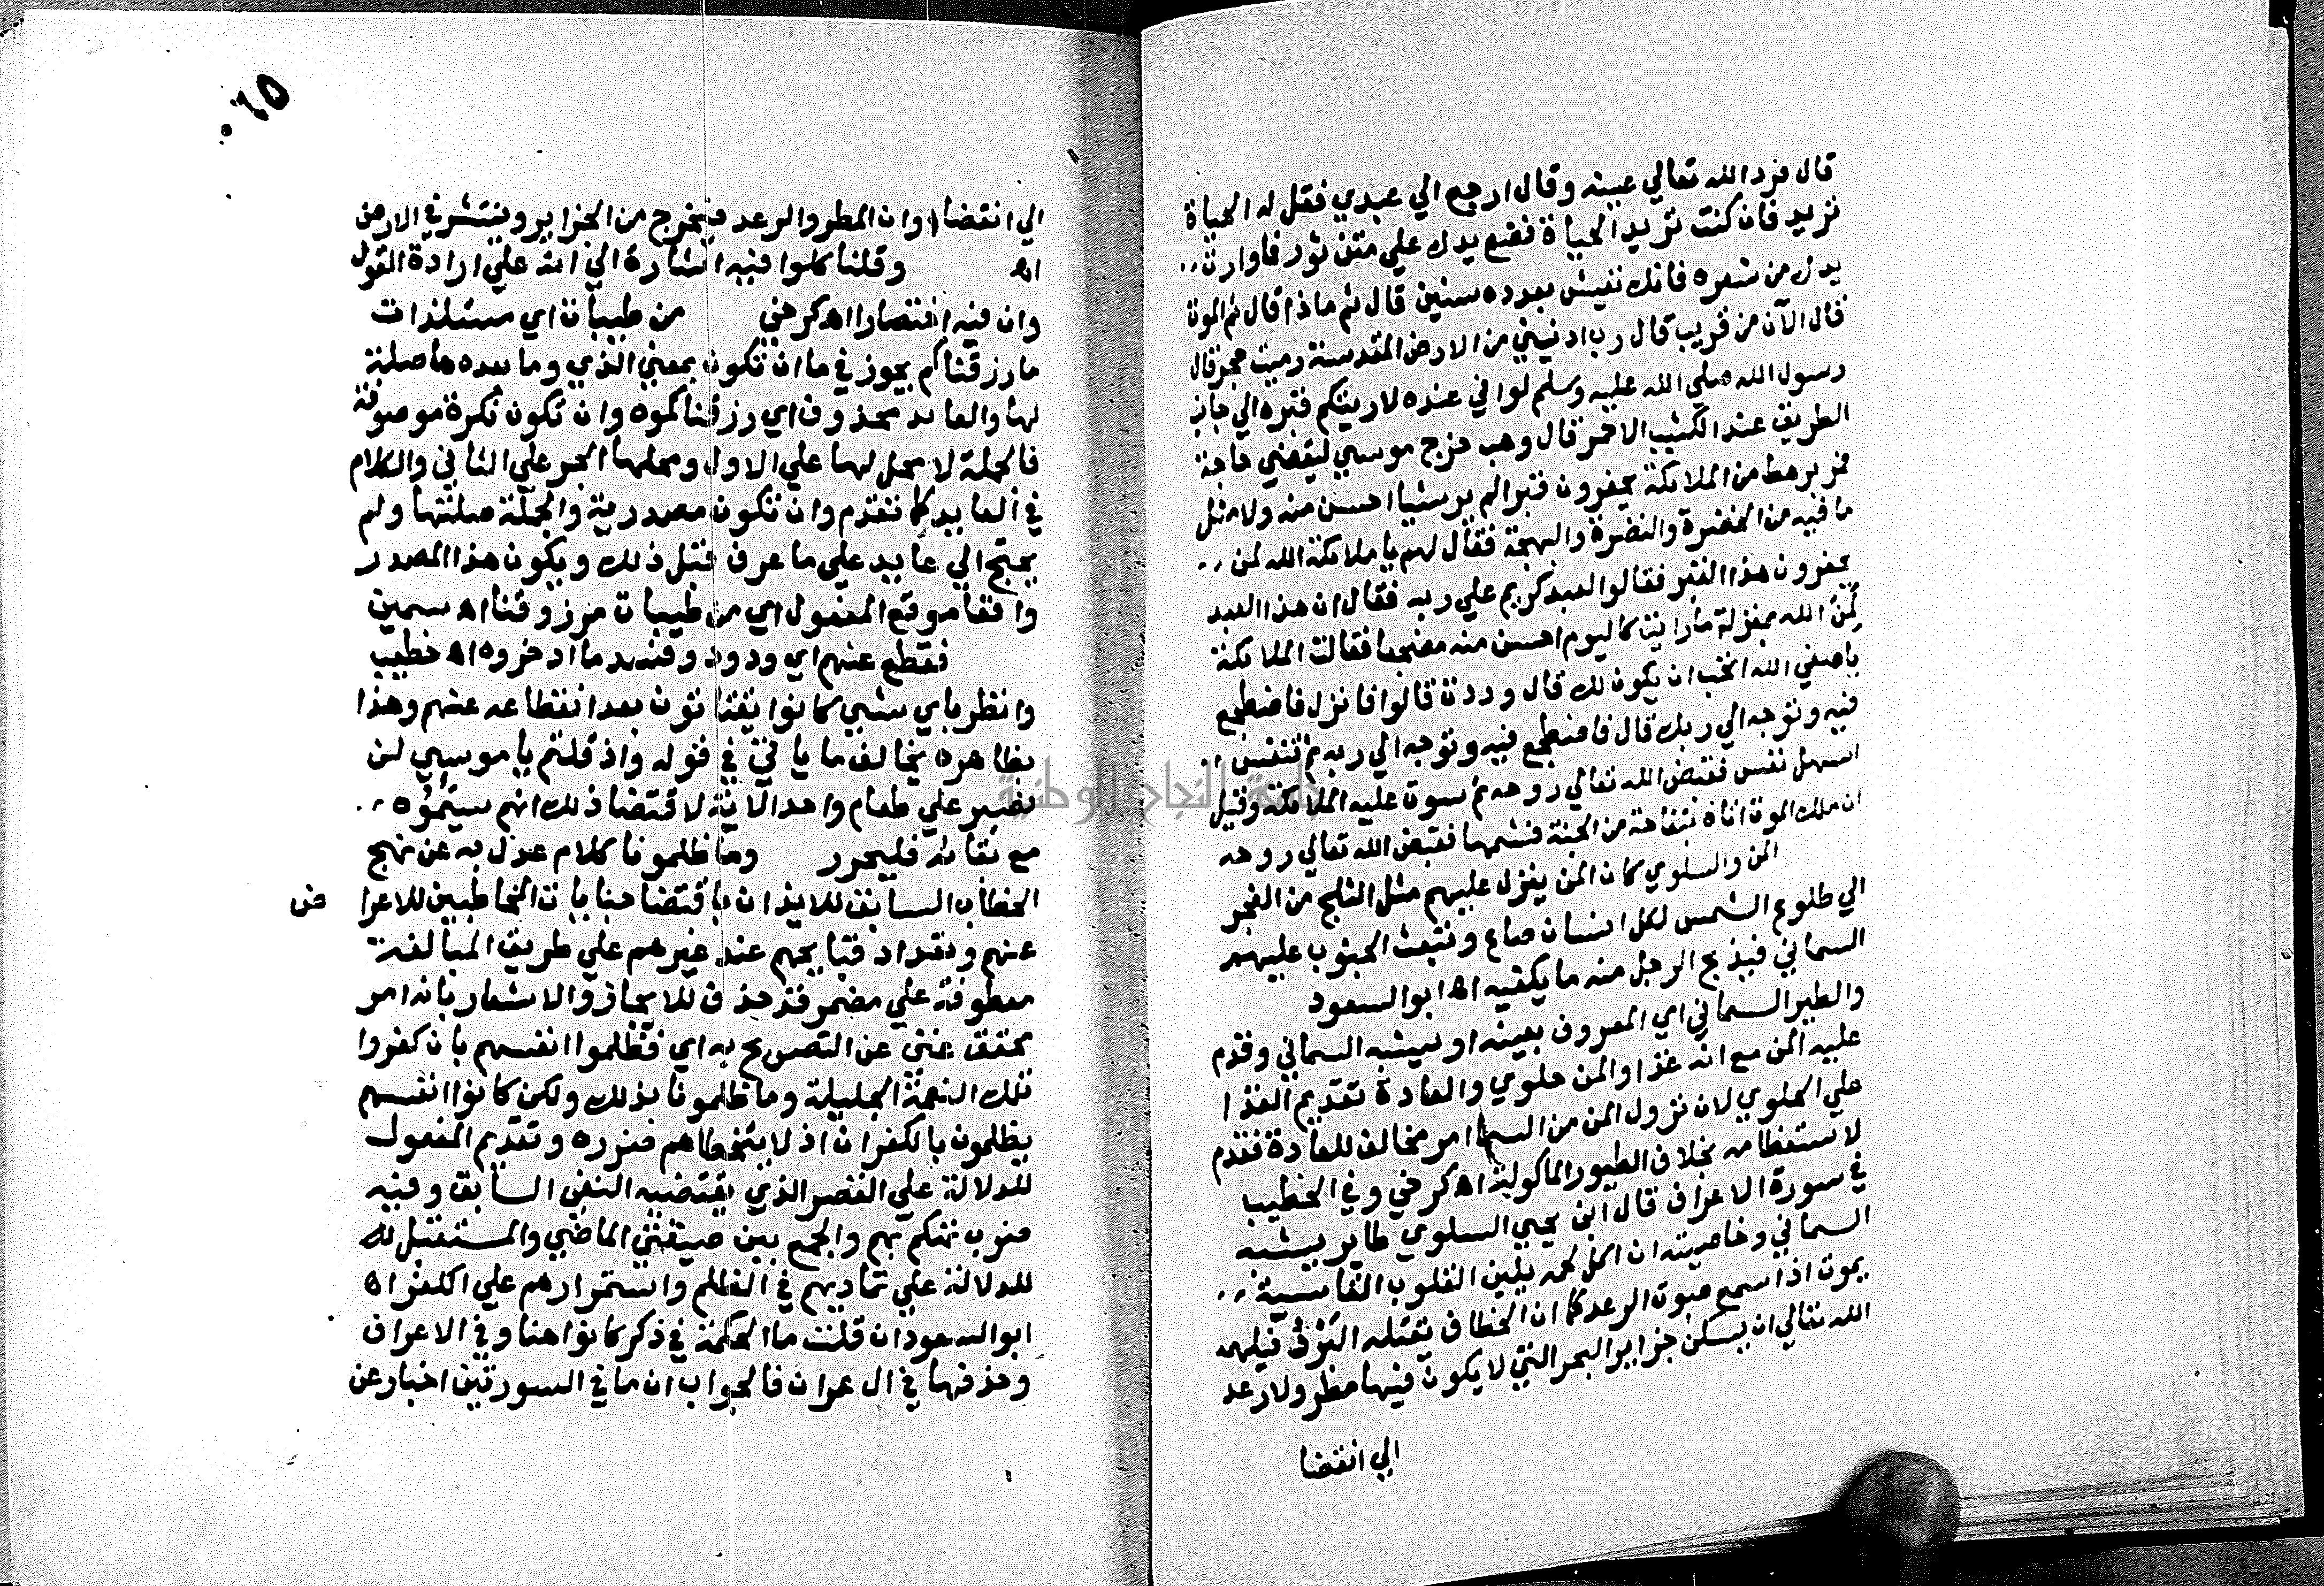 قال فرد الله تعالي عينه وقال ارجع الي عبدي فقل له الحياة
تريد فان كنت تريد الحياة فضع يدك علي متن ثور فما وارت
يدك من شعره فانك تعيش بعدده سنين قال ثم ماذا قال ثم الموت
قال الآن من قريب قال رب ادنيني من الارض المقدسة رمية حجر قال
رسول الله صلي الله عليه وسلم لو اني عنده لاريتكم قبره الي جانب
الطريق عند الكثيب الاحمر قال وهب خرج موسي ليقضي حاجة
فمر برهط من الملائكة يحفرون قبرا لم ير شيا احسن منه ولا مثل
ما فيه من الخضرة والنضرة والبهجة فقال لهم يا ملائكة الله لمن
يحفرون هذا القبر فقالوا لعبد كريم علي ربه فقال ان هذا العبد
لمن الله بمنزلة ما رايت كاليوم احسن منه مضجعا فقالت الملائكة
يا صفي الله اتحب ان يكون لك قال وددت قالوا فانزل فاضطجع
فيه وتوجه الي ربك قال فاضطجع فيه وتوجه الي ربه ثم تنفس
اسهل نفس فقبض الله تعالي روحه ثم سوت عليه الملائكة وقيل
ان ملك الموت اتاه بتفاحة من الجنة فشمها فقبض الله تعالي روحه
المن والسلوي كان المن ينزل عليهم مثل الثلج من الفجر
الي طلوع الشمس لكل انسان صاع وتبعث الجنوب عليهم
السماني فيذبح الرجل منه ما يكفيه اه ابو السعود
والطير السماني اي المعروف بعينه او يشبه السماني وقدم
عليه المن مع انه غذا والمن حلوي والعادة تقديم الغذا
علي الحلوي لان نزول المن من السما امر مخالف للعادة فقدم
لاستعظامه بخلاف الطيور الماكولة اه كرخي وفي الخطيب
في سورة الاعراف قال ابن يحيي السلوي طاير يشبه
السماني وخاصيته ان اكل لحمه يلين القلوب القاسية
يموت اذا سمع صوت الرعد كما ان الخطاف يقتله البرد فيلهمه
الله تعالي ان يسكن جزاير البحر التي لا يكون فيها مطر ولا رعد
الي انقضا
٦٥
الي انقضا اوان المطر والرعد فيخرج من الجزاير وينتشر في الارض
اه وقلنا كلوا فيه اشارة الي انه علي ارادة القول
وان فيه اختصارا اه كرخي من طيبات اي مستلذات
ما رزقناكم يجوز في ما ان تكون بمعني الذي وما بعدها صلة
لها والعايد محذوف اي رزقناكموه وان تكون نكرة موصوفة
فالجملة لا محل لها علي الاول ومحلها الجر علي الثاني والكلام
في العايد كما تقدم وان تكون مصدرية والجملة صلتها ولم
يحتج الي عايد علي ما عرف قبل ذلك ويكون هذا المصدر
واقعا موقع المفعول اي من طيبات مرزوقنا اه سمين
فقطع عنهم اي ودود وفسد ما ادخروه اه خطيب
وانظر باي شيي كانوا يقتاتون بعد انقطاعه عنهم وهذا
بظاهره يخالف ما ياتي في قوله واذ قلتم يا موسي لن
نصبر علي طعام واحد الاية لاقتضا ذلك انهم سيموه
مع بقائه فليحرر وما ظلمونا كلام عدل به عن نهج
الخطاب السابق للايذان باقتضا جنايات المخاطبين للاعرا ض
عنهم وتعداد قبايحهم عند غيرهم علي طريق المبالغة
معطوفة علي مضمر قد حذف للايجاز والاشعار بانه امر
محقق غني عن التصريح به اي فظلموا انفسهم بان كفروا
تلك النعمة الجليلة وما ظلمونا بذلك ولكن كانوا انفسهم
يظلمون بالكفران اذ لا يتخطاهم ضرره وتقديم المفعول
للدلالة علي القصر الذي يقتضيه النفي السابق وفيه
ضرب تهكم بهم والجمع بين صيغتي الماضي والمستقبل
للدلالة علي تماديهم في الظلم واستمرارهم علي الكفر اه
ابو السعود ان قلت ما الحكمة في ذكر كانوا هنا وفي الاعراف
وحذفها في ال عمران فالجواب ان ما في السورتين اخبار عن